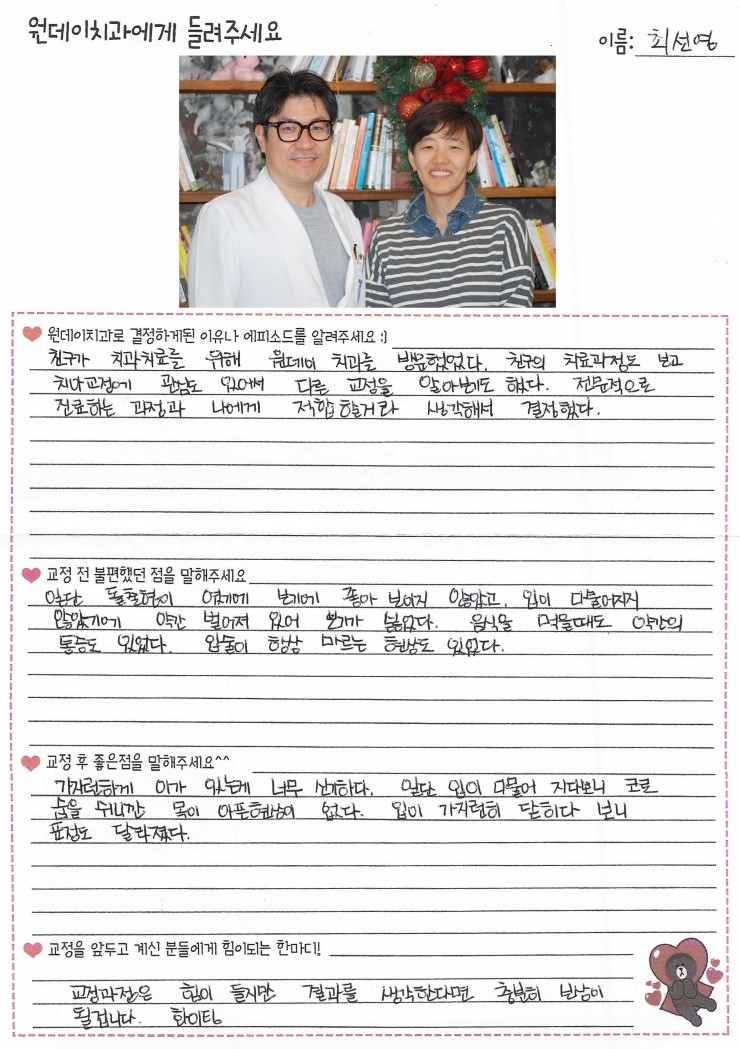 원데이치과에게 들려주세요
이름: 최선영
원데이치과로 결정하게된 이유나 에피소드를 알려주세요 :)
친구가 치과치료를 위해 원데이 치과를 방문했었다. 친구의 치료과정도 보고
치아교정에 관심도 있어서 다른 교정을 알아보기도 했다. 전문적으로
진료하는 과정과 나에게 적합할거라 생각해서 결정했다.
교정 전 불편했던 점을 말해주세요
일단 돌출형이 였기에 보기에 좋아 보이지 않았고, 입이 다물어지지
않았기에 약간 벌어져 있어 보기가 싫었다. 음식을 먹을때도 약간의
통증도 있었다. 입술이 항상 마르는 현상도 있었다.
교정 후 좋은점을 말해주세요^^
가지런하게 이가 있는게 너무 신기하다. 일단 입이 다물어 지다보니 코로
숨을 쉬니깐 목이 아픈현상이 없다. 입이 가지런히 닫히다 보니
표정도 달라졌다.
교정을 앞두고 계신 분들에게 힘이되는 한마디!
교정과정은 힘이 들지만 결과를 생각한다면 충분히 보상이
될겁니다. 화이팅